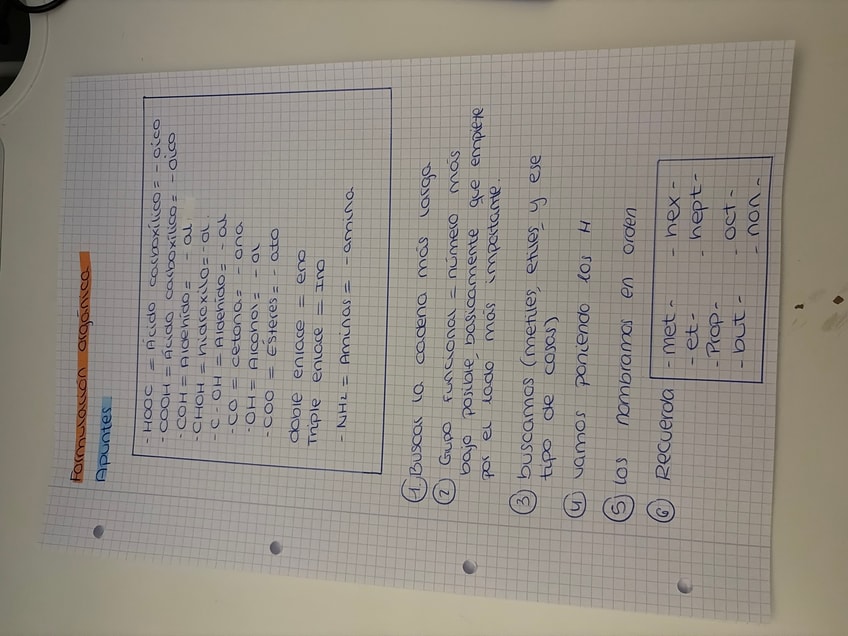 Formulación orgánica
Apuntes
- HOOC = Ácido carboxílico = - oico
- COOH = Ácido carboxílico = - oico
- COH = Aldehído = - al
- CHOH = hidroxilo = - ol
- C - OH = Aldehído = - al
- CO = cetona = - ona
- OH = Alcohol = - ol
- COO = Ésteres = - ato
doble enlace = eno
Triple enlace = Ino
- NH2 = Aminas = - amina
① Buscar la cadena más larga
② Grupo funcional = número más
bajo posible, basicamente que empiete
por el lado más importante.
③ buscamos (metiles, etiles y ese
tipo de cosas)
④ vamos poniendo los H
⑤ los nombramos en orden
⑥ Recuerda
- met - - hex -
- et - - hept -
- Prop -
- but - - oct -
- non -